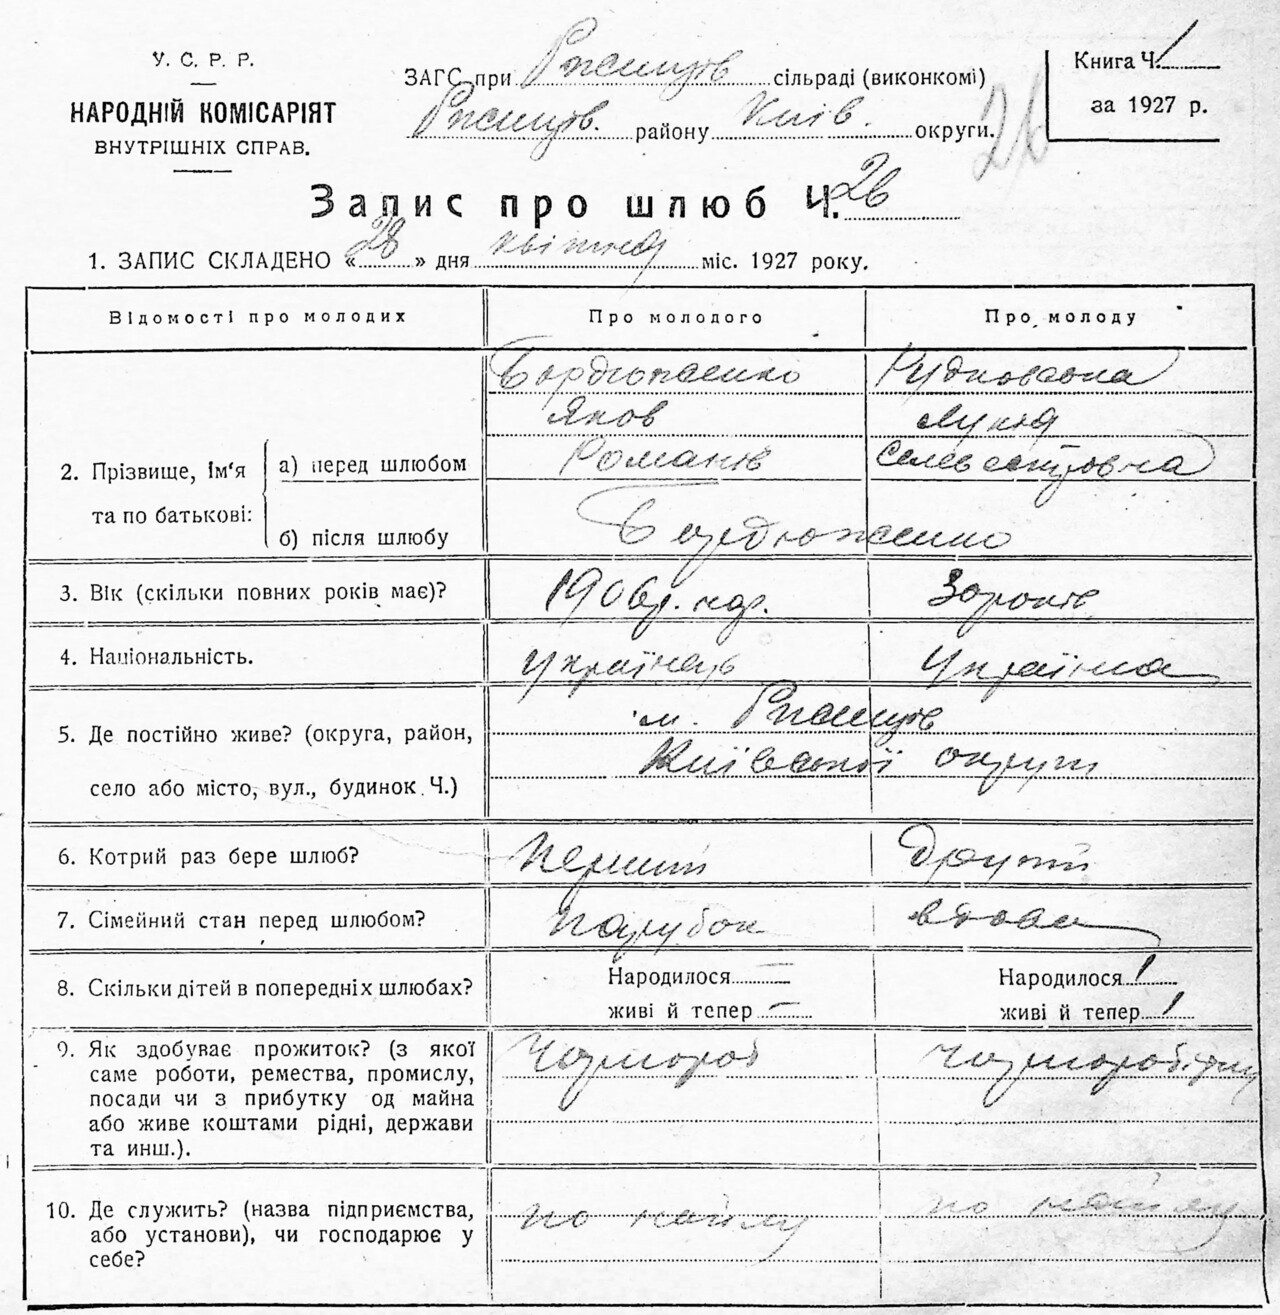 У. С. Р. Р.
НАРОДНІЙ КОМІСАРІЯТ
ВНУТРІШНІХ СПРАВ.
ЗАГС при Ржищів сільраді (виконкомі)
Ржищів. району Київ. округи.
Книга Ч. 1
за 1927 р.
26
Запис про шлюб Ч. 26
1. ЗАПИС СКЛАДЕНО « 28 » дня квітня міс. 1927 року.
Відомості про молодих Про молодого Про молоду
2. Прізвище, Ім'я та по батькові:
а) перед шлюбом
Бордюженко Рудковська
Яков Лукія
Романів Селевестровна
б) після шлюбу Бордюженко
3. Вік (скільки повних років має)? 1906 р. нар. 30 років
4. Національність. Українець Українка
5. Де постійно живе? (округа, район, м. Ржищів
село або місто, вул., будинок Ч.) Київської округи
6. Котрий раз бере шлюб? перший другий
7. Сімейний стан перед шлюбом? парубок вдова
8. Скільки дітей в попередніх шлюбах? Народилося — Народилося 1
живі й тепер — живі й тепер 1
9. Як здобуває прожиток? (з якої Чорнороб
саме роботи, ремества, промислу,
посади чи з прибутку од майна
або живе коштами рідні, держави
та инш.).
10. Де служить? (назва підприємства, по найму по найму
або установи), чи господарює у
себе?